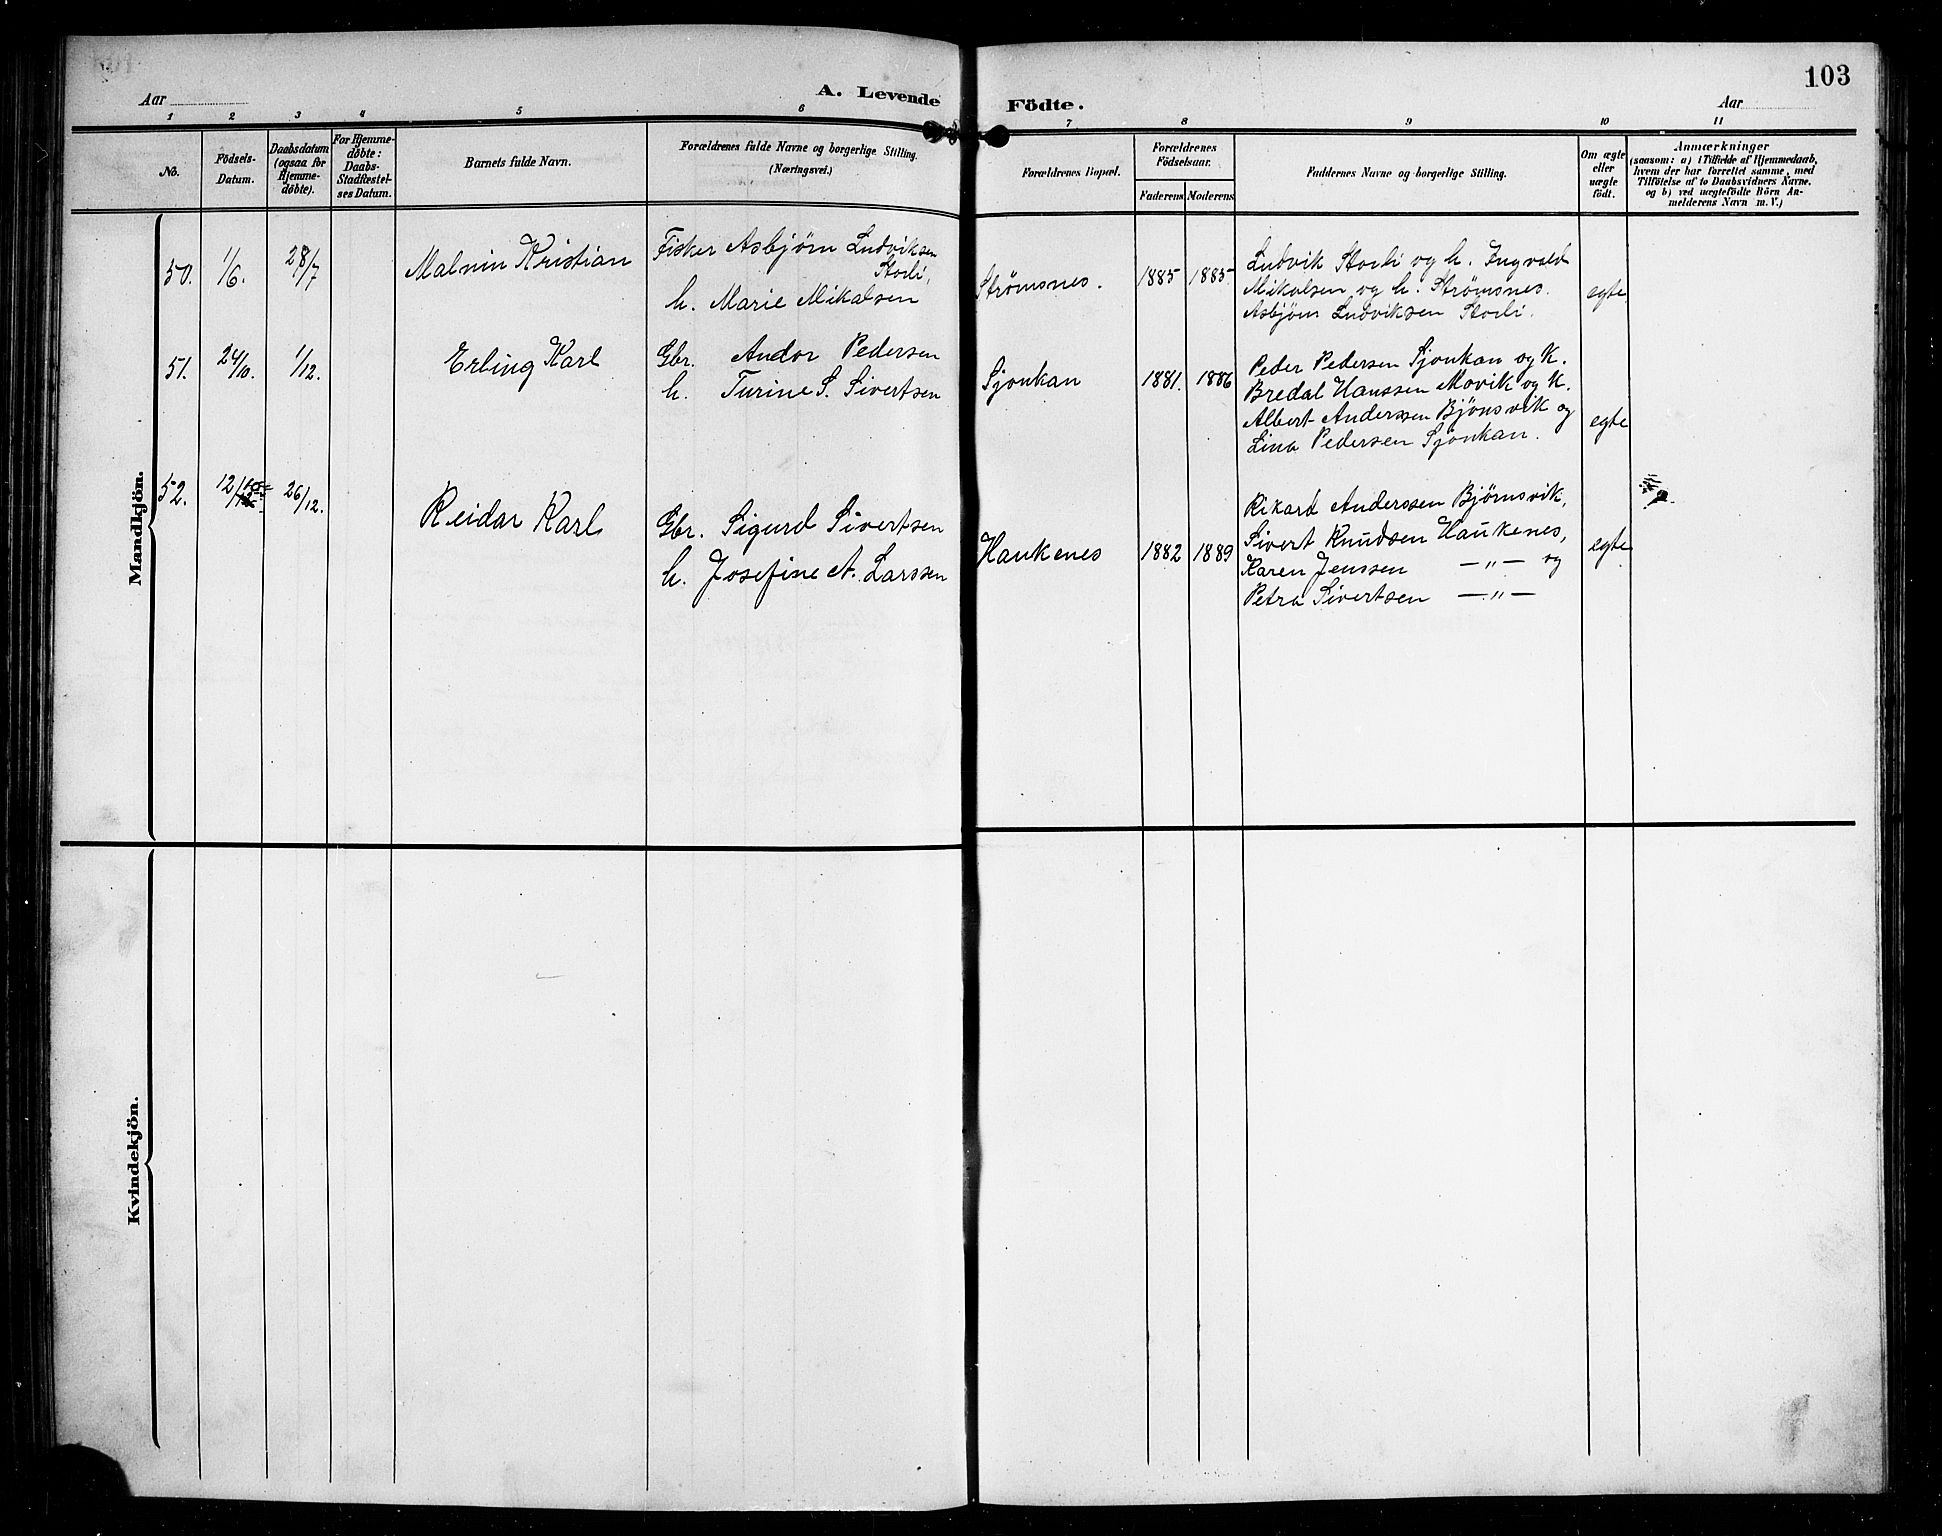 103
Aar
A. Levende
Födte.
Aar
1 2 3 4 5 6 7 8 9 10 11
No.
Födsels-
Datum.
Daabsdatum
(ogsaa for
Hjemme-
döbte).
For Hjemme-
döbte:
Daabs-
Stadfæstel-
ses Datum.
Barnets fulde Navn.
Forældrenes fulde Navne og borgerlige Stilling.
(Næringsvei.)
Forældrenes Bopæl.
Forældrenes
Födselsaar.
Faderens Moderens
Faddernes Navne og borgerlige Stilling.
Om ægte
eller
uægte
födt.
Anmærkninger
(saasom: a) i Tilfælde af Hjemmedaab,
hvem der har forrettet samme, med
Tilföielse af to Daabsvidners Navne.
og b) ved uægtefödte Börn An-
melderens Navn m. V.)
Mandkjön.
50. 1/6. 28/7 Malvin Kristian
Fisker Asbjørn Ludviksen
Storli,
h. Marie Mikalsen
Strømsnes. 1885 1885
Ludvik Storli og h. Ingvald
Mikalsen og h. Strømsnes.
Asbjørn Ludviksen Storli.
egte
51. 24/10. 1/12. Erling Karl
Gbr. Andor Pedersen
h. Turine S. Sivertsen
Sjonkan 1881. 1886
Peder Pedersen Sjonkan og K.
Bredal Hanssen Movik og K.
Albert Anderssen Bjönsvik og
Lina Pedersen Sjonkan.
egte
52. 12/ 26/12. Reidar Karl
Gbr. Sigurd Sivertsen
h. Josefine A. Larssen
Haukenes 1882 1889
Rikard Anderssen Bjørnsvik,
Sivert Knudsen Haukenes,
Karen Jenssen —"— og
Petra Sivertsen —"—
egte
Kvindekjön.